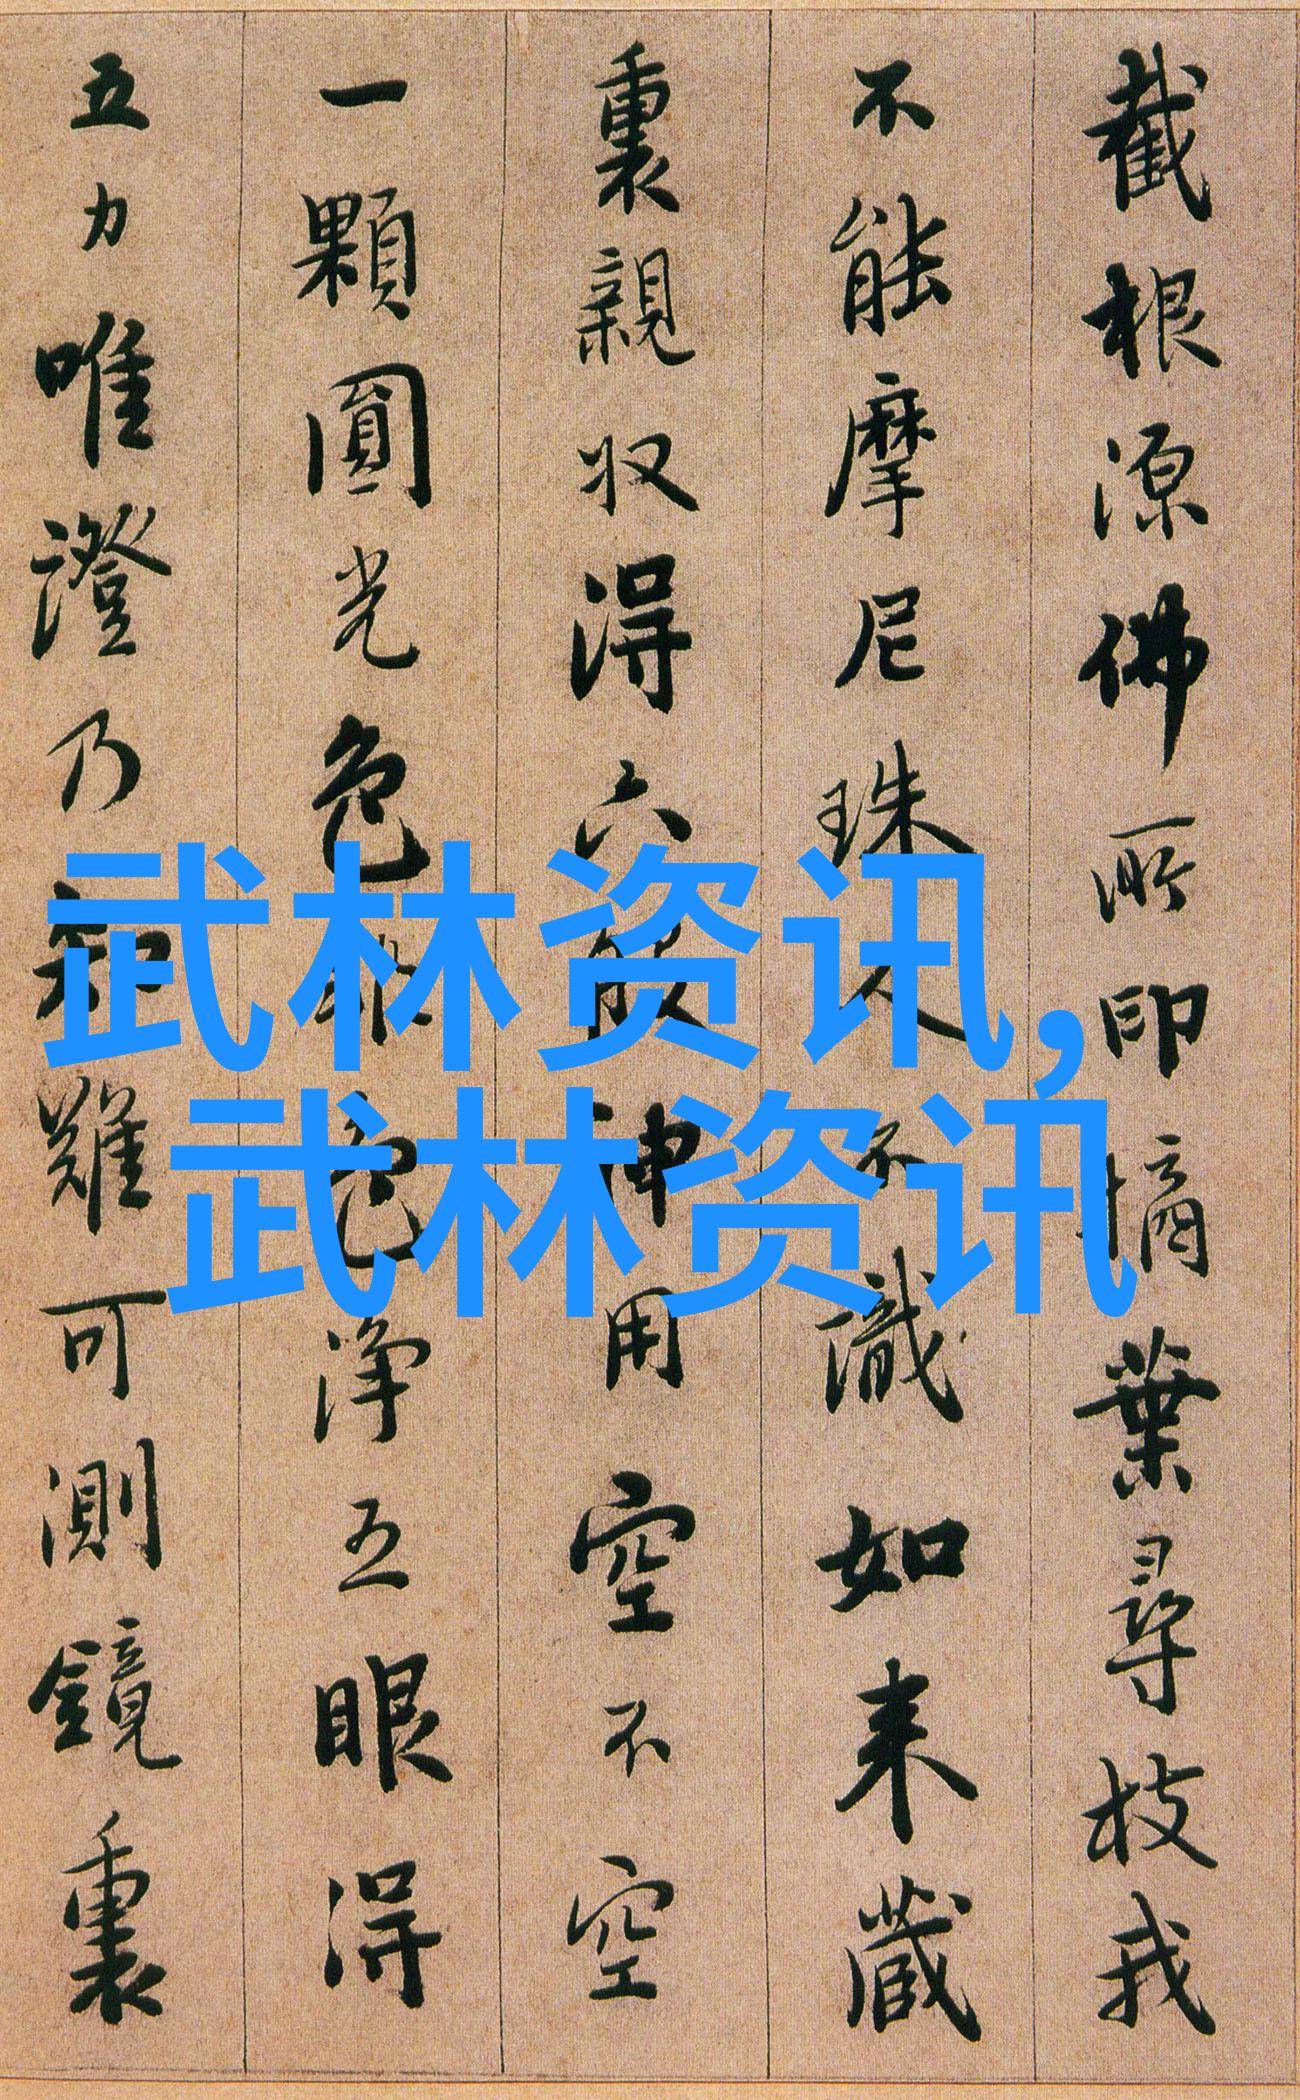 截根源佛所印摘葉尋枝我
不能摩尼珠人不識如来藏
裏親収得六般神用空不空
一顆圓光色非色淨五眼得
五力唯證乃知難可測鏡裏
武林资讯,
武林资讯